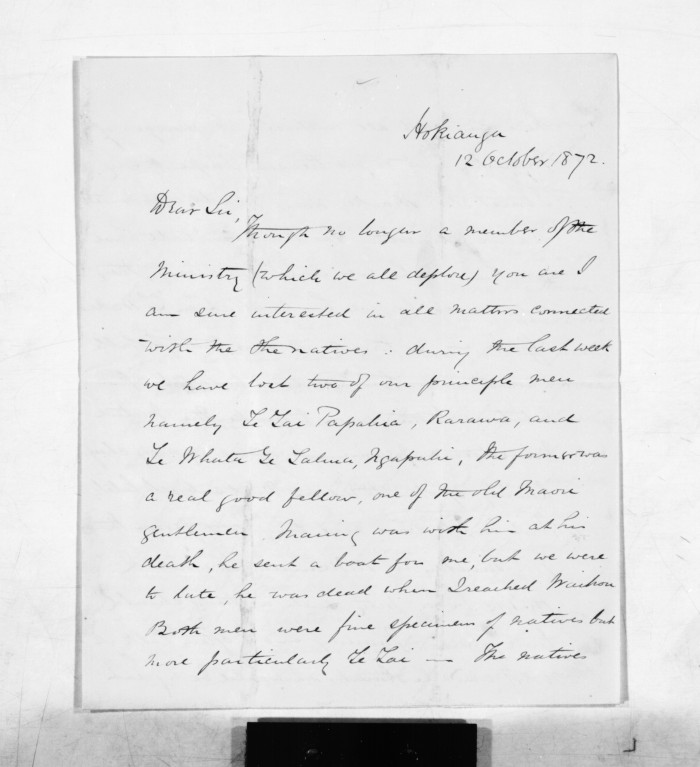 Hokianga
12 October 1872.
Dear Sir,
Though no longer a member of the
Ministry (which we all deplore) you are I
am sure interested in all matters connected
with the the natives : during the last week
we have lost two of our principle men
namely Te Tai Papahia, Rarawa, and
Te Whata Te Tahua, Ngapuhi, the former was
a real good fellow, one of the old Maori
gentlemen Maning was with him at his
death, he sent a boat for me, but we were
to late, he was dead when I reached Waihou
Both men were fine specimens of natives but
more particularly Te Tai — The natives